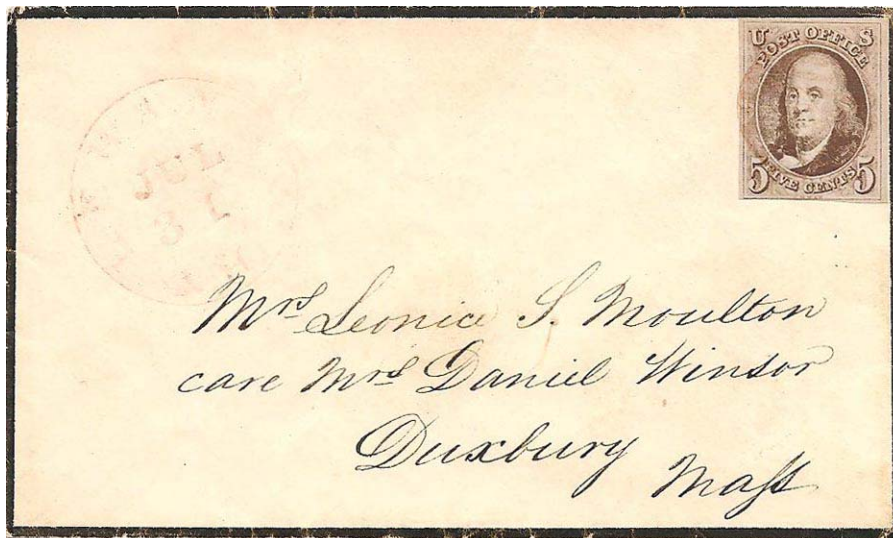 U S
POST OFFICE
5 FIVE CENTS 5
JUL
31
Mrs Leonice S. Moulton
care Mrs Daniel Winsor
Duxbury
Maſs